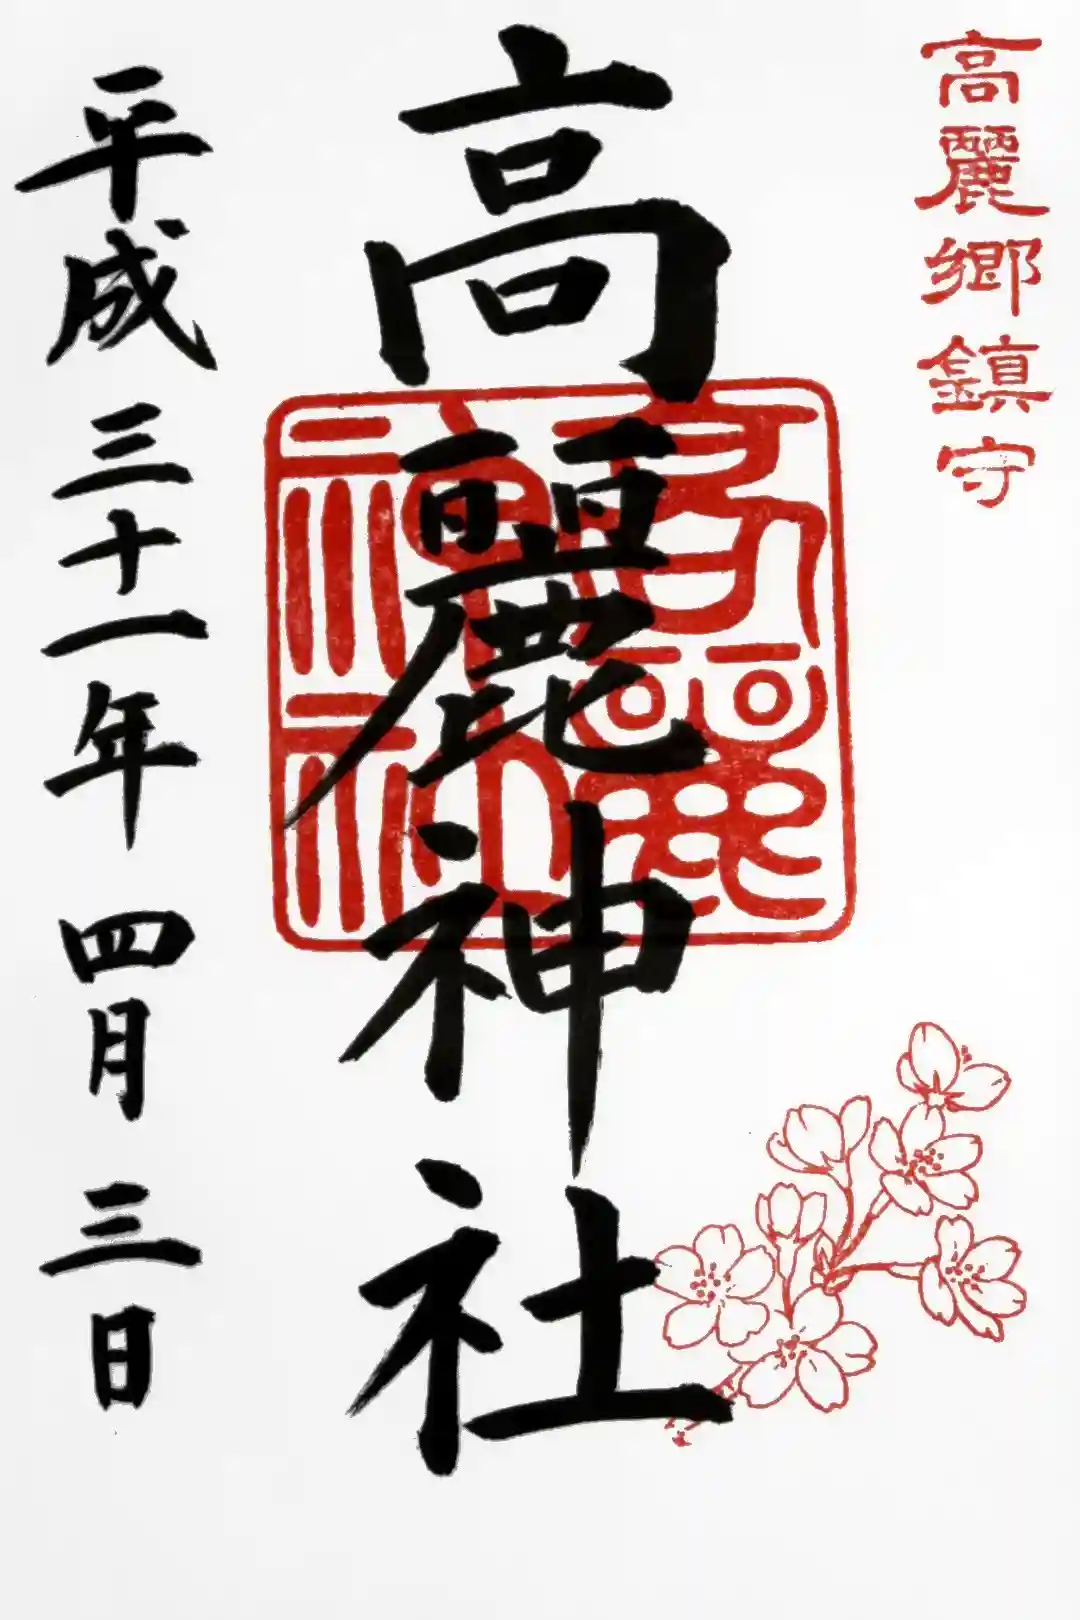 高麗郷鎮守
高麗神社
高麗神社
平成三十一年四月三日